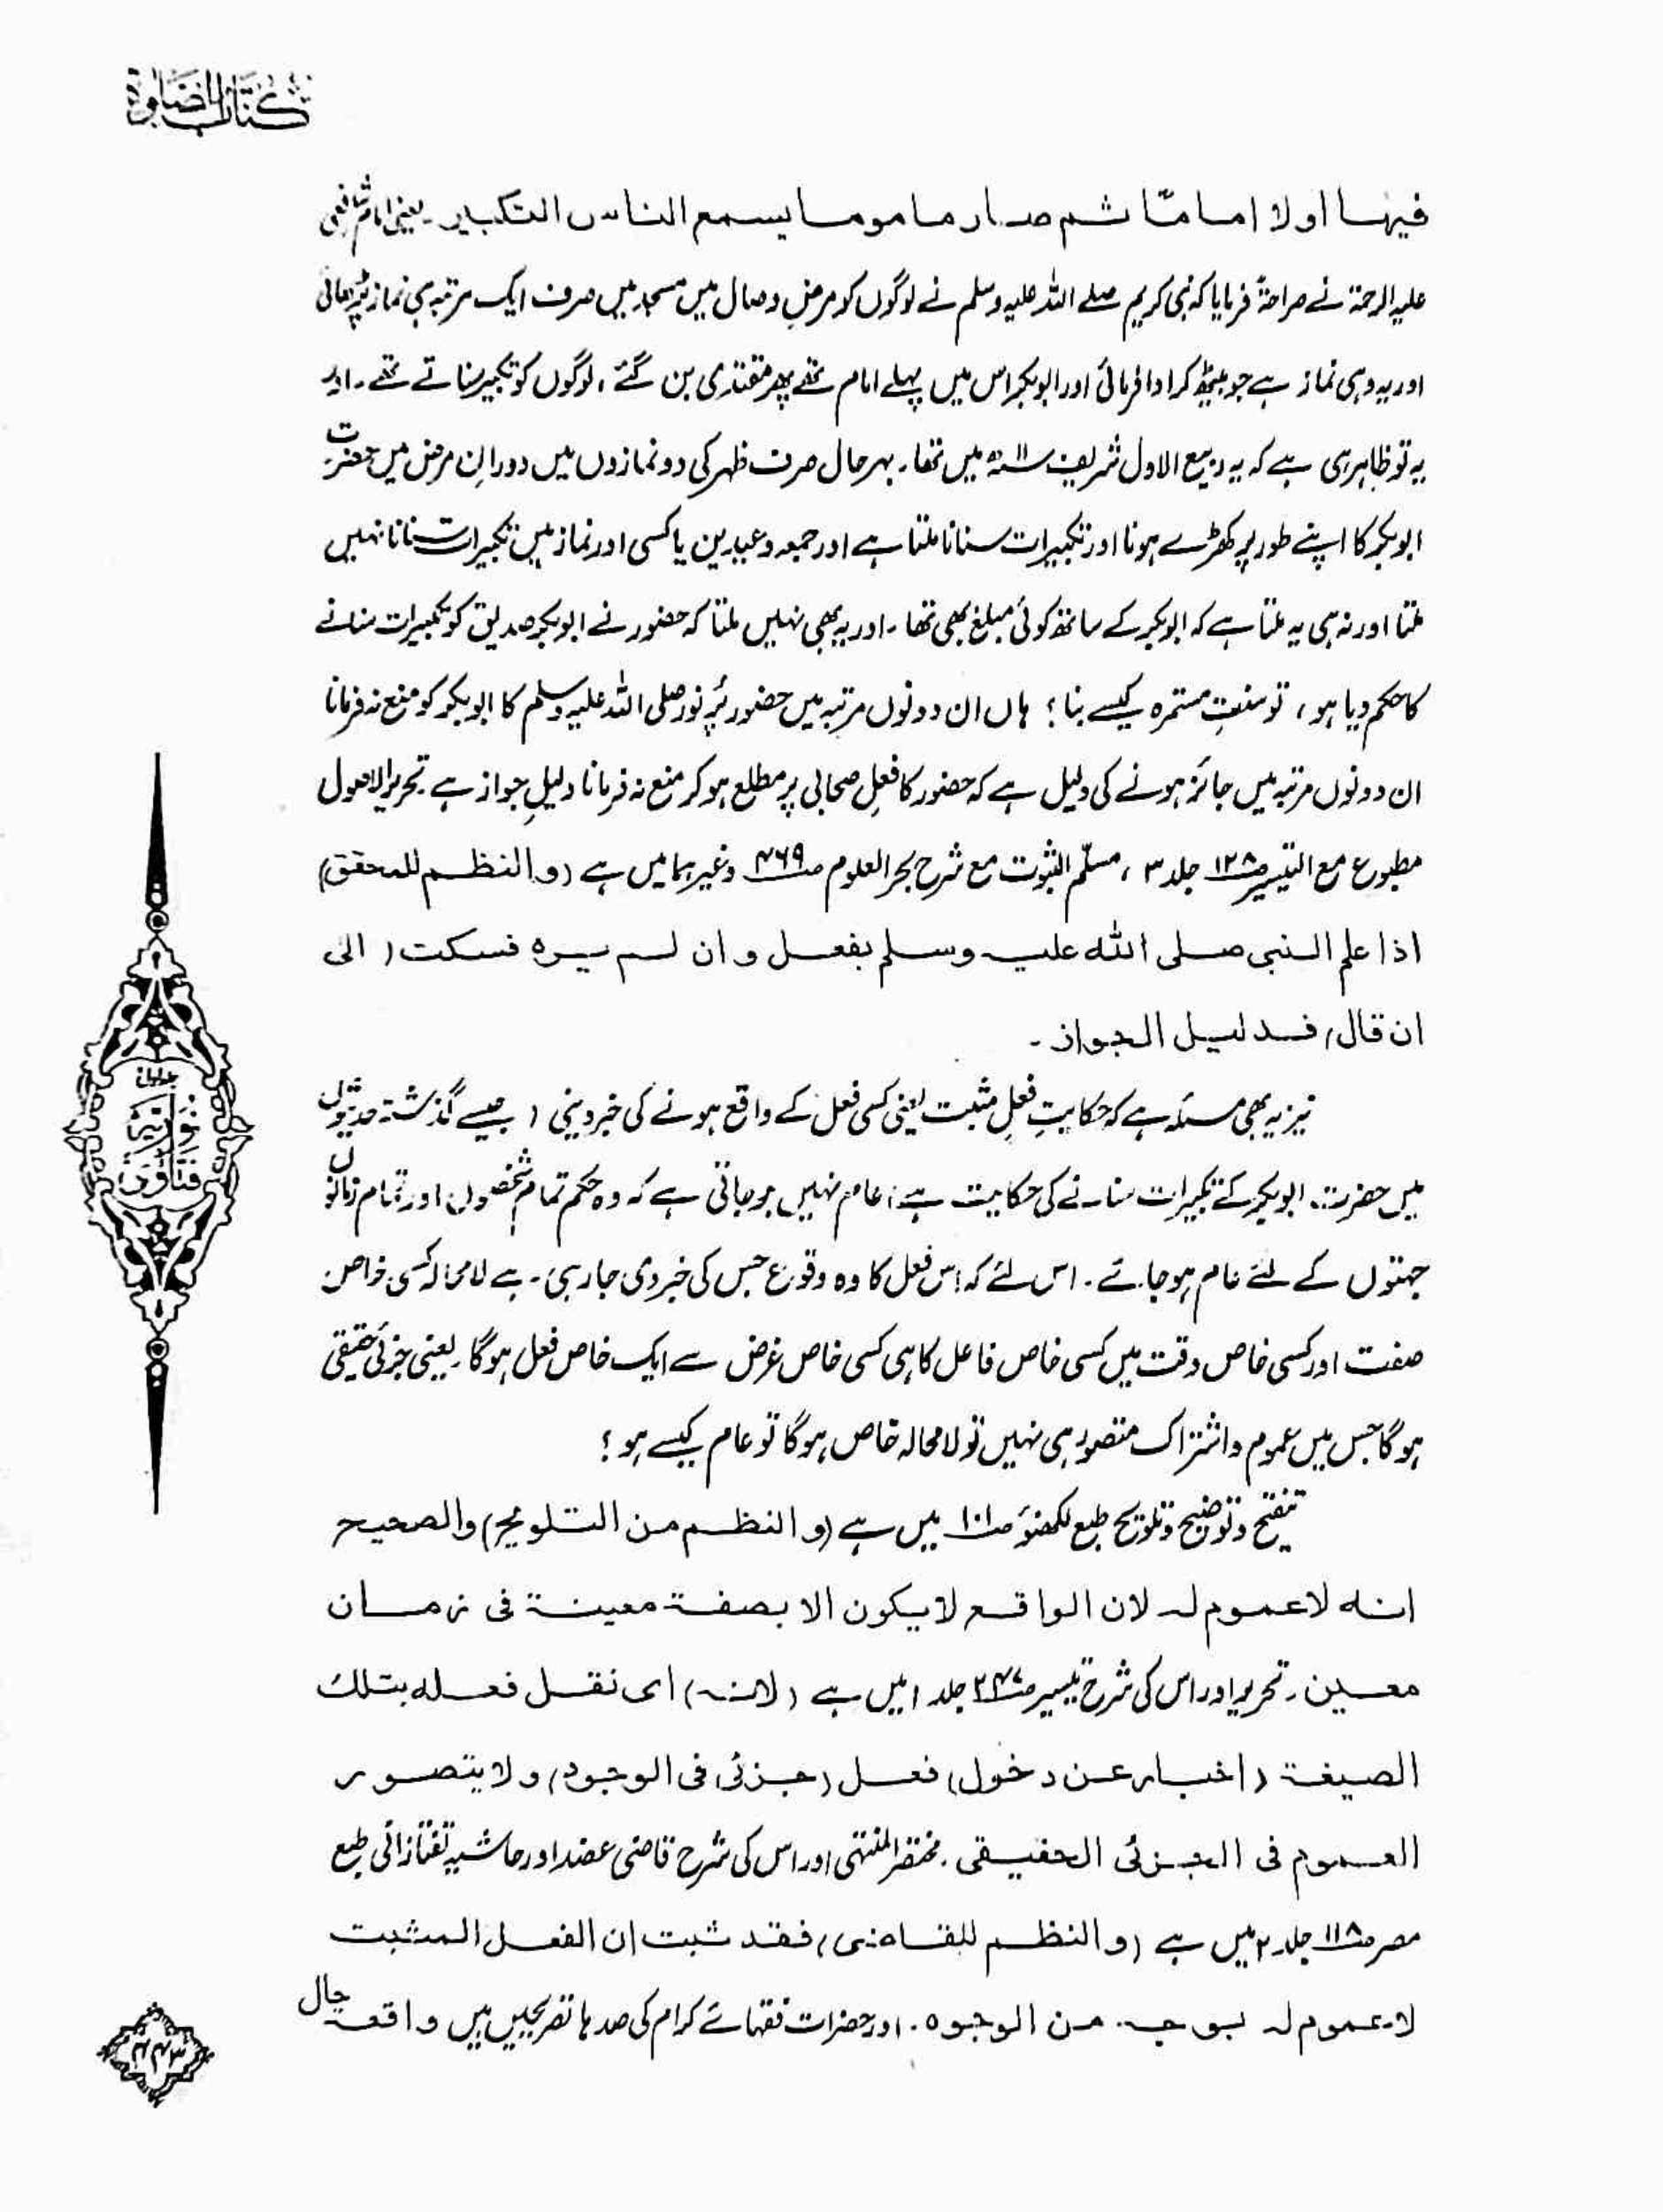 کتاب الصلوة
فیہا اولا اماما ثم صار ماموما یسمع الناس التکبیر ۔ یعنی امام شافعی
علیہ الرحمۃ نے صراحۃً فرمایا کہ نبی کریم صلے اللہ علیہ وسلم نے لوگوں کو مرض وصال میں مسجد میں صرف ایک مرتبہ ہی نماز پڑھائی
اور یہ وہی نماز ہے جو بیٹھ کر ادا فرمائی اور ابوبکر اس میں پہلے امام تھے پھر مقتدی بن گئے ، لوگوں کو تکبیر سناتے تھے ۔ اور
یہ تو ظاہر ہی ہے کہ یہ ربیع الاول شریف ۱۱ھ میں تھا ۔ بہرحال صرف ظہر کی دو نمازوں میں دورانِ مرض میں حضرت
ابوبکر کا اپنے طور پر کھڑے ہونا اور تکبیرات سنانا ملتا ہے اور جمعہ وعیدین یا کسی اور نماز میں تکبیرات سنانا نہیں
ملتا اور نہ ہی یہ ملتا ہے کہ ابوبکر کے ساتھ کوئی مبلغ بھی تھا ۔ اور یہ بھی نہیں ملتا کہ حضور نے ابوبکر صدیق کو تکبیرات سنانے
کا حکم دیا ہو ، تو سنتِ مستمرہ کیسے بنا ؟ ہاں ان دونوں مرتبہ میں حضور پُر نور صلی اللہ علیہ وسلم کا ابوبکر کو منع نہ فرمانا
ان دونوں مرتبہ میں جائز ہونے کی دلیل ہے کہ حضور کا فعلِ صحابی پر مطلع ہو کر منع نہ فرمانا دلیلِ جواز ہے ۔ تحریر الاصول
مطبوع مع التیسیر ص۱۲۸ جلد ۳ ، مسلّم الثبوت مع شرح بحر العلوم ص۴۶۹ وغیرہما میں ہے (والنظم للمحقق)
اذا علم النبی صلی اللہ علیہ وسلم بفعل وان لم یرہ فسکت (الی
ان قال) فدلیل الجواز ۔
نیز یہ بھی مسئلہ ہے کہ حکایتِ فعلِ مثبت یعنی کسی فعل کے واقع ہونے کی خبر دینی (جیسے گذشتہ حدیثوں
میں حضرت ابوبکر کے تکبیرات سنانے کی حکایت ہے) عام نہیں ہو جاتی ہے کہ وہ حکم تمام شخصوں اور تمام زمانوں
جہتوں کے لئے عام ہو جائے ۔ اس لئے کہ اس فعل کا وہ وقوع جس کی خبر دی جا رہی ہے لامحالہ کسی خاص
صفت اور کسی خاص وقت میں کسی خاص فاعل کا ہی کسی خاص غرض سے ایک خاص فعل ہوگا ۔ یعنی جزئی حقیقی
ہوگا جس میں عموم واشتراک متصور ہی نہیں تو لامحالہ خاص ہوگا تو عام کیسے ہو ؟
تنقیح وتوضیح وتلویح طبع لکھنؤ ص۱۰۱ میں ہے (والنظم من التلویح) والصحیح
انہ لا عموم لہ لان الواقع لا یکون الا بصفۃ معینۃ فی زمان
معین ۔ تحریر اور اس کی شرح تیسیر ص۲۴۷ جلد ۱ میں ہے (لانہ) ای نقل فعلہ بتلک
الصیغۃ (اخبار عن دخول) فعل (جزئی فی الوجود) ولا یتصور
العموم فی الجزئی الحقیقی ۔ مختصر المنتہی اور اس کی شرح قاضی عضد اور حاشیہ تفتازانی طبع
مصر ص۱۱۸ جلد ۲ میں ہے (والنظم للقاضی) فقد ثبت ان الفعل المثبت
لا عموم لہ بوجہ من الوجوہ ۔ اور حضرات فقہائے کرام کی صدہا تصریحیں ہیں واقعۃ حال
فتاوی نوریہ
۴۴۳